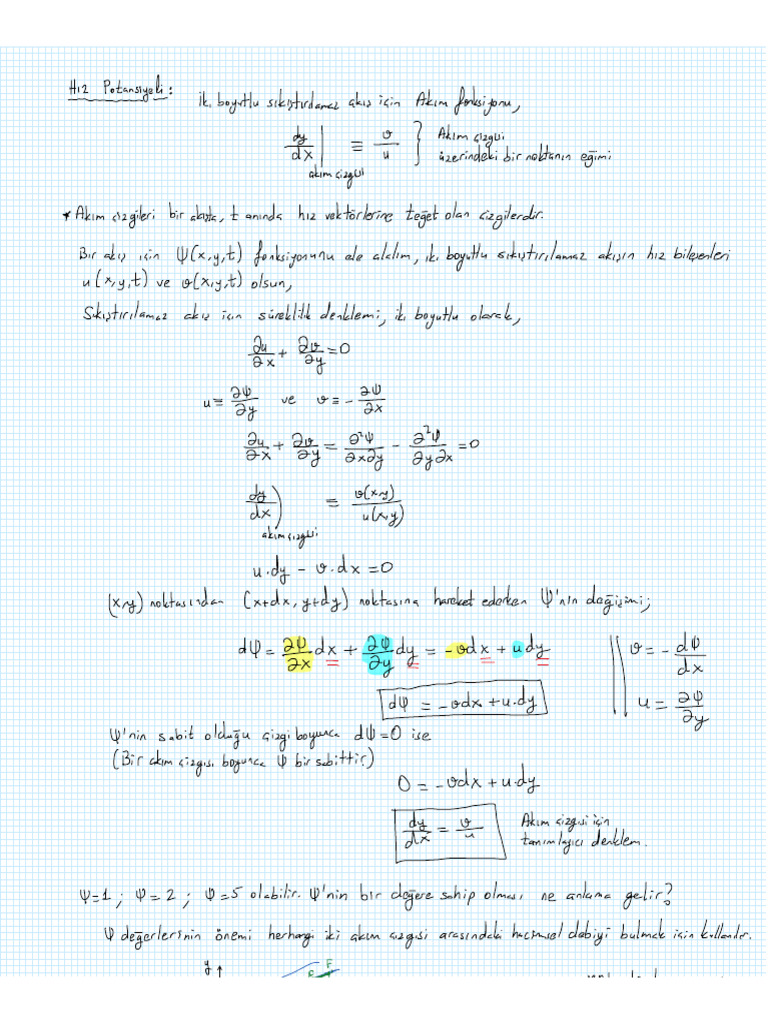 Hız Potansiyeli: İki boyutlu sıkıştırılamaz akış için Akım fonksiyonu,
dy/dx | akım çizgisi ≡ v/u } Akım çizgisi
üzerindeki bir noktanın eğimi
* Akım çizgileri bir akışta, t anında hız vektörlerine teğet olan çizgilerdir.
Bir akış için Ψ(x,y,t) fonksiyonunu ele alalım, iki boyutlu sıkıştırılamaz akışın hız bileşenleri
u(x,y,t) ve v(x,y,t) olsun,
Sıkıştırılamaz akış için süreklilik denklemi, iki boyutlu olarak,
∂u/∂x + ∂v/∂y = 0
u ≡ ∂Ψ/∂y ve v ≡ - ∂Ψ/∂x
∂u/∂x + ∂v/∂y = ∂²Ψ/∂x∂y - ∂²Ψ/∂y∂x = 0
dy/dx ) akım çizgisi ≡ v(x,y)/u(x,y)
u.dy - v.dx = 0
(x,y) noktasından (x+dx, y+dy) noktasına hareket ederken Ψ'nin değişimi;
dΨ = ∂Ψ/∂x dx + ∂Ψ/∂y dy = -vdx + udy
v = - dΨ/dx
u = ∂Ψ/∂y
dΨ = -vdx + u.dy
Ψ'nin sabit olduğu çizgi boyunca dΨ=0 ise
(Bir akım çizgisi boyunca Ψ bir sabittir.)
0 = -vdx + u.dy
dy/dx = v/u Akım çizgisi için
tanımlayıcı denklem.
Ψ=1 ; Ψ=2 ; Ψ=5 olabilir. Ψ'nin bir değere sahip olması ne anlama gelir?
Ψ değerlerinin önemi herhangi iki akım çizgisi arasındaki hacimsel debiyi bulmak için kullanılır.
y F